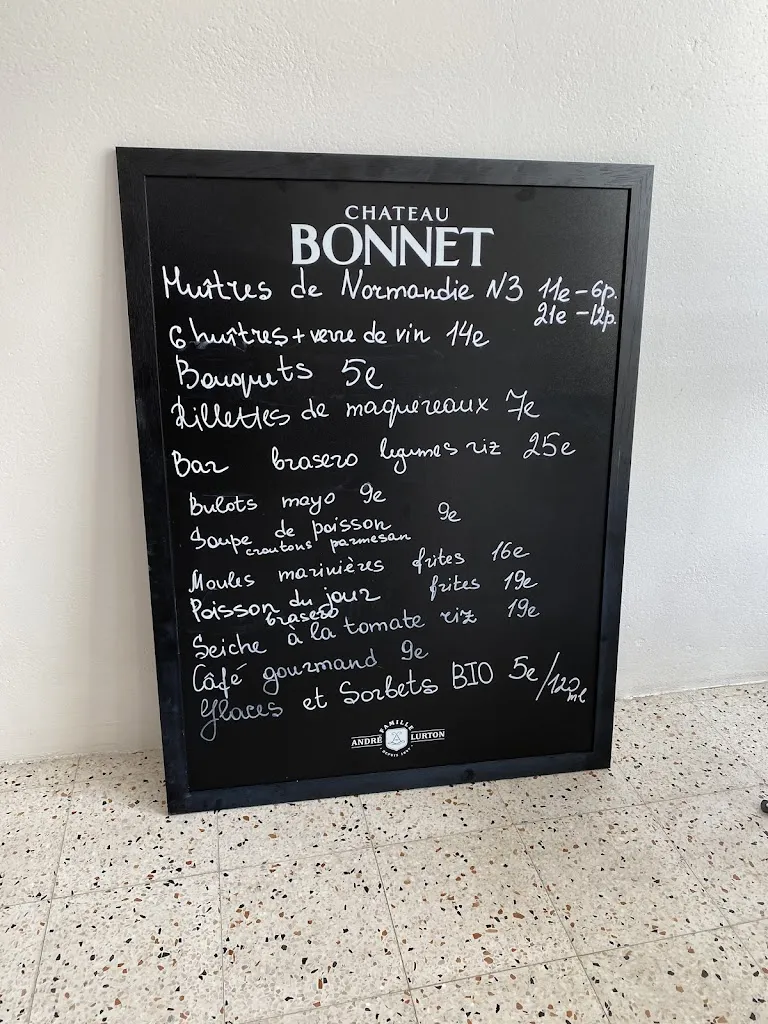 CHATEAU
BONNET
Huîtres de Normandie N3 11e - 6p.
21e - 12p.
6 huîtres + verre de vin 14e
Bouquets 5e
Rillettes de maquereaux 7e
Bar brasero legumes riz 25e
Bulots mayo 9e
Soupe de poisson 9e
croutons parmesan
Moules marinières frites 16e
Poisson du jour frites 19e
brasero
Seiche à la tomate riz 19e
Câfé gourmand 9e
Glaces et Sorbets BIO 5e/120ml
FAMILLE
ANDRÉ LURTON
DEPUIS 1897